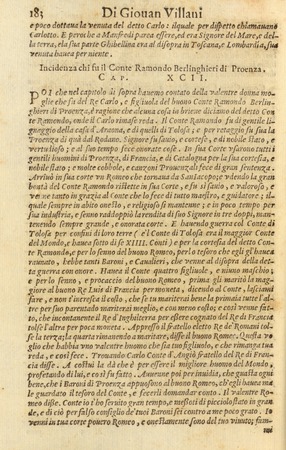 183 Di Giouan Villani
e poco dottaua la venuta del detto Carlo: ilquale per dispetto chiamauano
Carlotto. E peroche a Manfredi parea essere, ed era Signore del Mare, e del-
la terra, e la sua parte Ghibellina era al disopra in Toscana, e Lombardia, sua
venuta hauea per niente.
Incidenza chi fu il Conte Ramondo Berlinghieri di Proenza.
CAP. XCII.
POI che nel capitolo di sopra hauemo contato della valentre donna mo-
glie che fu del Re Carlo, e figliuola del buono Conte Ramondo Berlin-
ghieri di Proenza, è ragione che alcuna cosa in brieue diciamo del detto Con
te Ramondo, onde il Carlo rimase reda. Il Conte Ramondo fu di gentile li-
gnaggio della casa d'Araona, e di quelli di Tolosa, e per retaggio fu sua la
Proenza di quà dal Rodano. Signore fu sauio, e cortese, e di nobile stato, e
vertudioso; e al suo tempo fece onorate cose. In sua Corte vsarono tutti i
gentili huomini di Proenza, di Francia, e di Catalogna per la sua cortesia, e
nobile stato; e molte cobbole, e canzoni Prouenzali fece di gran sentenza.
Arriuò in sua corte vn Romeo che tornaua da Santiacopo; e vdendo la gran
bontà del Conte Ramondo ristette in sua Corte, e fu sì sauio, e valoroso, e
venne tanto in grazia al Conte che lo fece di tutto maestro, e guidatore; il
quale sempre in abito onesto, e religioso si mantenne, e in poco tempo per
sua industria, e senno raddoppiò la rendita di suo Signore in tre doppi, man-
tenendo sempre grande, e onorata corte. E hauendo guerra col Conte di
Tolosa per confini di loro terre (e'l Conte di Tolosa era il maggior Conte
del Mondo, e hauea sotto di se XIIII. Conti) e per la cortesia del detto Con-
te Ramondo, e per lo senno del buono Romeo, per lo tesoro che egli hauea
raunato, hebbe tanti Baroni, e Caualieri, che venne al disopra della det-
ta guerra con onore. Hauea il Conte quattro figliuole, e niuno maschio;
e per lo senno, e procaccio del buono Romeo, prima gli maritò la maggio-
re al buono Re Luis di Francia per moneta, dicendo al Conte, lasciami
fare, e non t'incresca il costo, che se tu mariterai bene la primaia tutte l'al-
tre per suo parentado mariterai meglio, e con meno costo; e così venne fat-
to, che incontanente il Re d'Inghilterra per essere cognato del Re di Francia
tolse l'altra per poca moneta. Appresso il fratello eletto Re de' Romani tol-
se la terza; la quarta rimanendo a maritare, disse il buono Romeo: Questa vo-
glio che habbia vno valentre huomo che sia tuo figliuolo, e che rimanga tua
reda, e così fece. Trouando Carlo Conte d'Angiò fratello del Re di Fran-
cia disse. A costui la dà che è per essere il migliore huomo del Mondo,
profetando di lui, e così fu fatto. Auuenne poi per inuidia, che guasta ogni
bene, che i Baroni di Proenza appuosono al buono Romeo, ch'egli hauea ma-
le guardato il tesoro del Conte, e feceli domandar conto. Il valentre Ro-
meo disse. Conte io t'ho seruito gran tempo, e messoti di picciolo stato in gran
de, e di ciò per falso consiglio de' tuoi Baroni sei contro a me poco grato. Io
venni in tua corte pouero Romeo, e onestamente sono del tuo viuuto; fam-